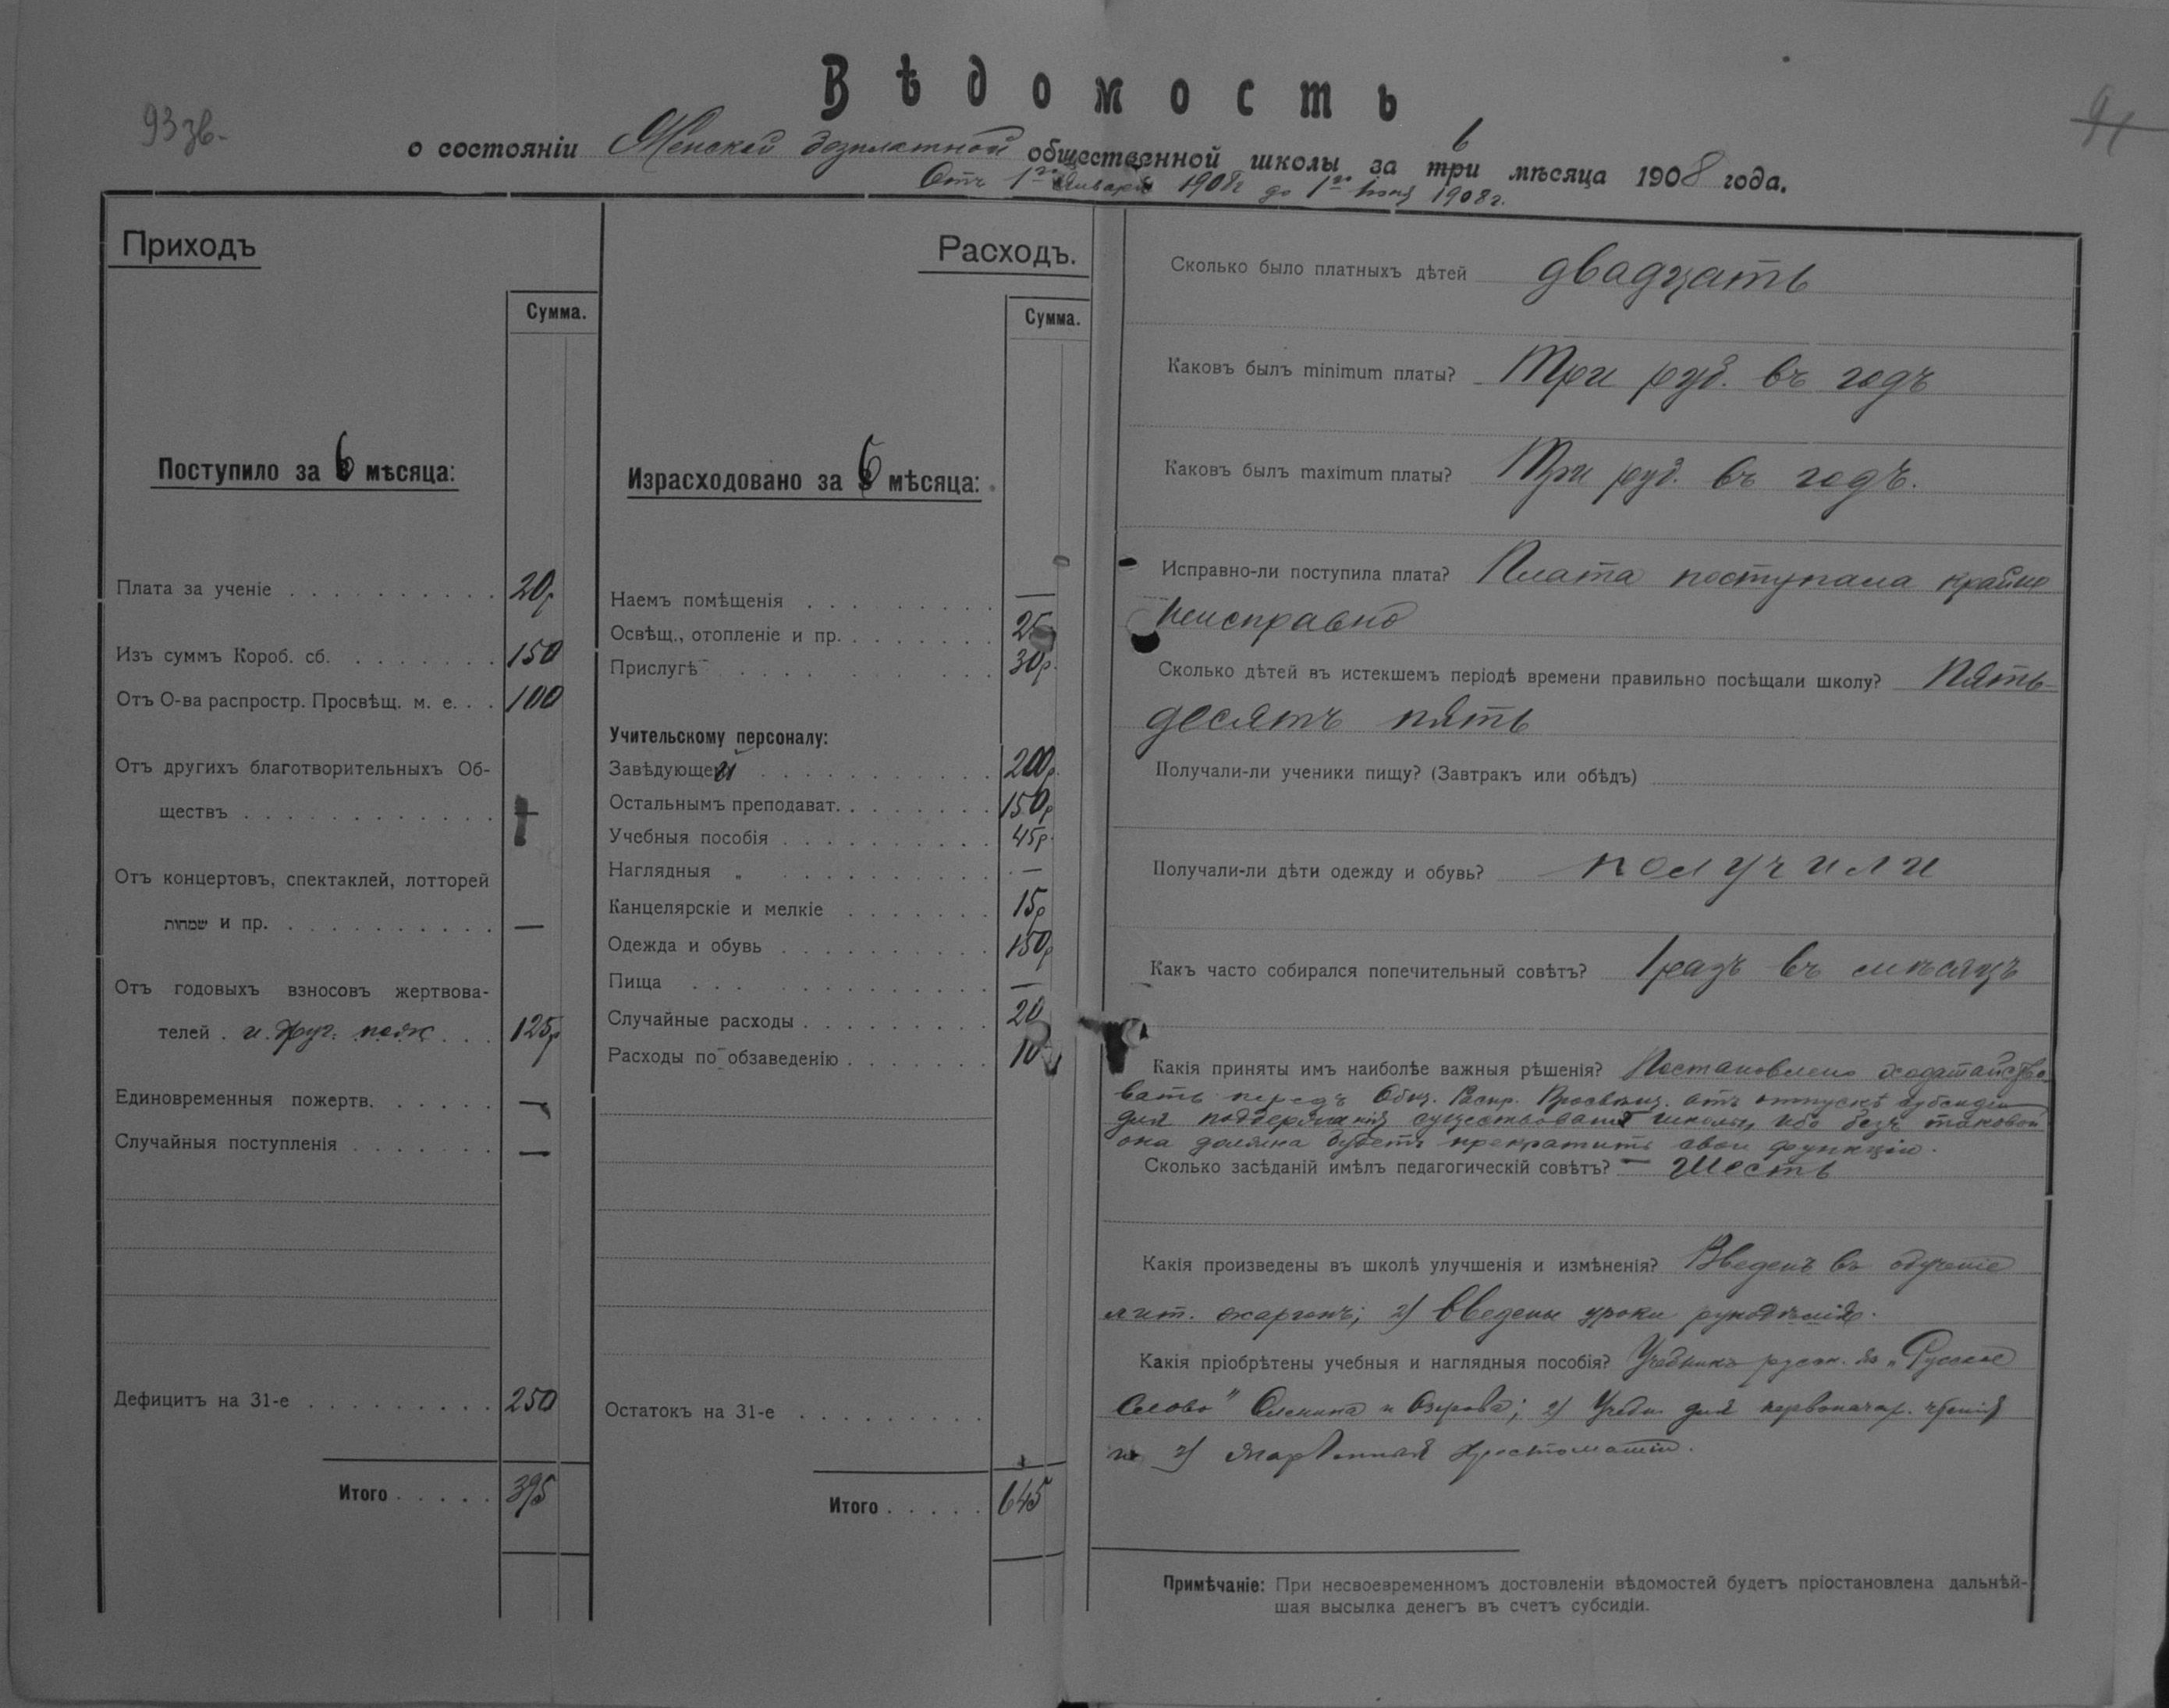 93 зв.
91
Вѣдомость
о состояніи Женской безплатной общественной школы за три 6 мѣсяца 1908 года.
Отъ 1го Января 1908г до 1го Іюня 1908г.
Приходъ
Сумма.
Поступило за 6 мѣсяца:
Плата за ученіе 20р
Изъ суммъ Короб. сб. 150
Отъ О-ва распростр. Просвѣщ. м. е. 100
Отъ другихъ благотворительныхъ Об-
ществъ
Отъ концертовъ, спектаклей, лотторей
שמחות и пр. —
Отъ годовыхъ взносовъ жертвова-
телей и друг. 125р
Единовременныя пожертв. —
Случайныя поступленія —
Дефицитъ на 31-е 250
Итого 395
Расходъ.
Сумма.
Израсходовано за 6 мѣсяца:
Наемъ помѣщенія —
Освѣщ., отопленіе и пр. 25
Прислугѣ 30р.
Учительскому персоналу:
Завѣдующей 200р.
Остальнымъ преподават. 150р
Учебныя пособія 45р.
Наглядныя „ —
Канцелярскіе и мелкіе 15р
Одежда и обувь 150р
Пища —
Случайные расходы 20
Расходы по обзаведенію 10
Остатокъ на 31-е
Итого 645
Сколько было платныхъ дѣтей двадцать
Каковъ былъ minimum платы? Три руб. въ годъ
Каковъ былъ maximum платы? Три руб. въ годъ.
Исправно-ли поступила плата? Плата поступала крайне
неисправно
Сколько дѣтей въ истекшемъ періодѣ времени правильно посѣщали школу? Пять-
десятъ пять
Получали-ли ученики пищу? (Завтракъ или обѣдъ)
Получали-ли дѣти одежду и обувь? получили
Какъ часто собирался попечительный совѣтъ? 1 разъ въ мѣсяцъ
Какія приняты имъ наиболѣе важныя рѣшенія? Постановлено ходатайство-
вать передъ Общ. Распр. Просвѣщ. отпускѣ субсидіи
для поддержанія существованія школы, ибо безъ таковой
она должна будетъ прекратить свои функціи.
Сколько засѣданій имѣлъ педагогическій совѣтъ? — Шесть
Какія произведены въ школѣ улучшенія и измѣненія? Введенъ въ обученіе
лит. жаргонъ; 2) введены уроки рукодѣлія.
Какія пріобрѣтены учебныя и наглядныя пособія? Учебники русск. яз „Русское
Слово" и Озерова; 2) Учебн. для первоначал. чтенія
и 3) Жаргонная Хрестоматія.
Примѣчаніе: При несвоевременномъ достовленіи вѣдомостей будетъ пріостановлена дальнѣй-
шая высылка денегъ въ счетъ субсидіи.